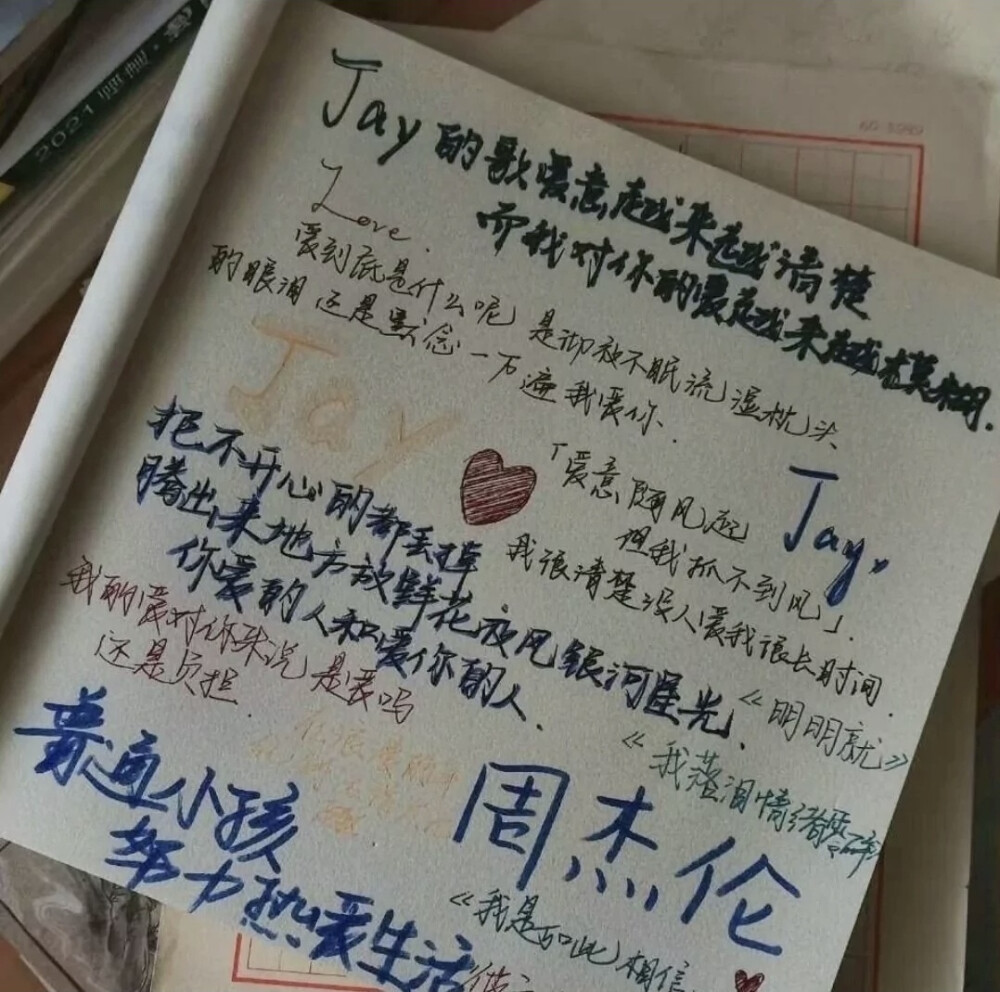 2021
Jay的歌爱意越来越清楚
而我对你的爱越来越模糊.
Love.
爱到底是什么呢 是彻夜不眠流湿枕头
的眼泪 还是默念一万遍我爱你.
Jay
「爱意随风起
但我抓不到风」.
Jay,
我很清楚没人爱我很长时间.
把不开心的都丢掉
腾出来地方放鲜花夜风银河星光、
你爱的人和爱你的人.
《明明就》
我的爱对你来说是爱吗
还是负担.
《我落泪情绪零碎
普通小孩
努力热爱生活
周杰伦
《我是如此相信